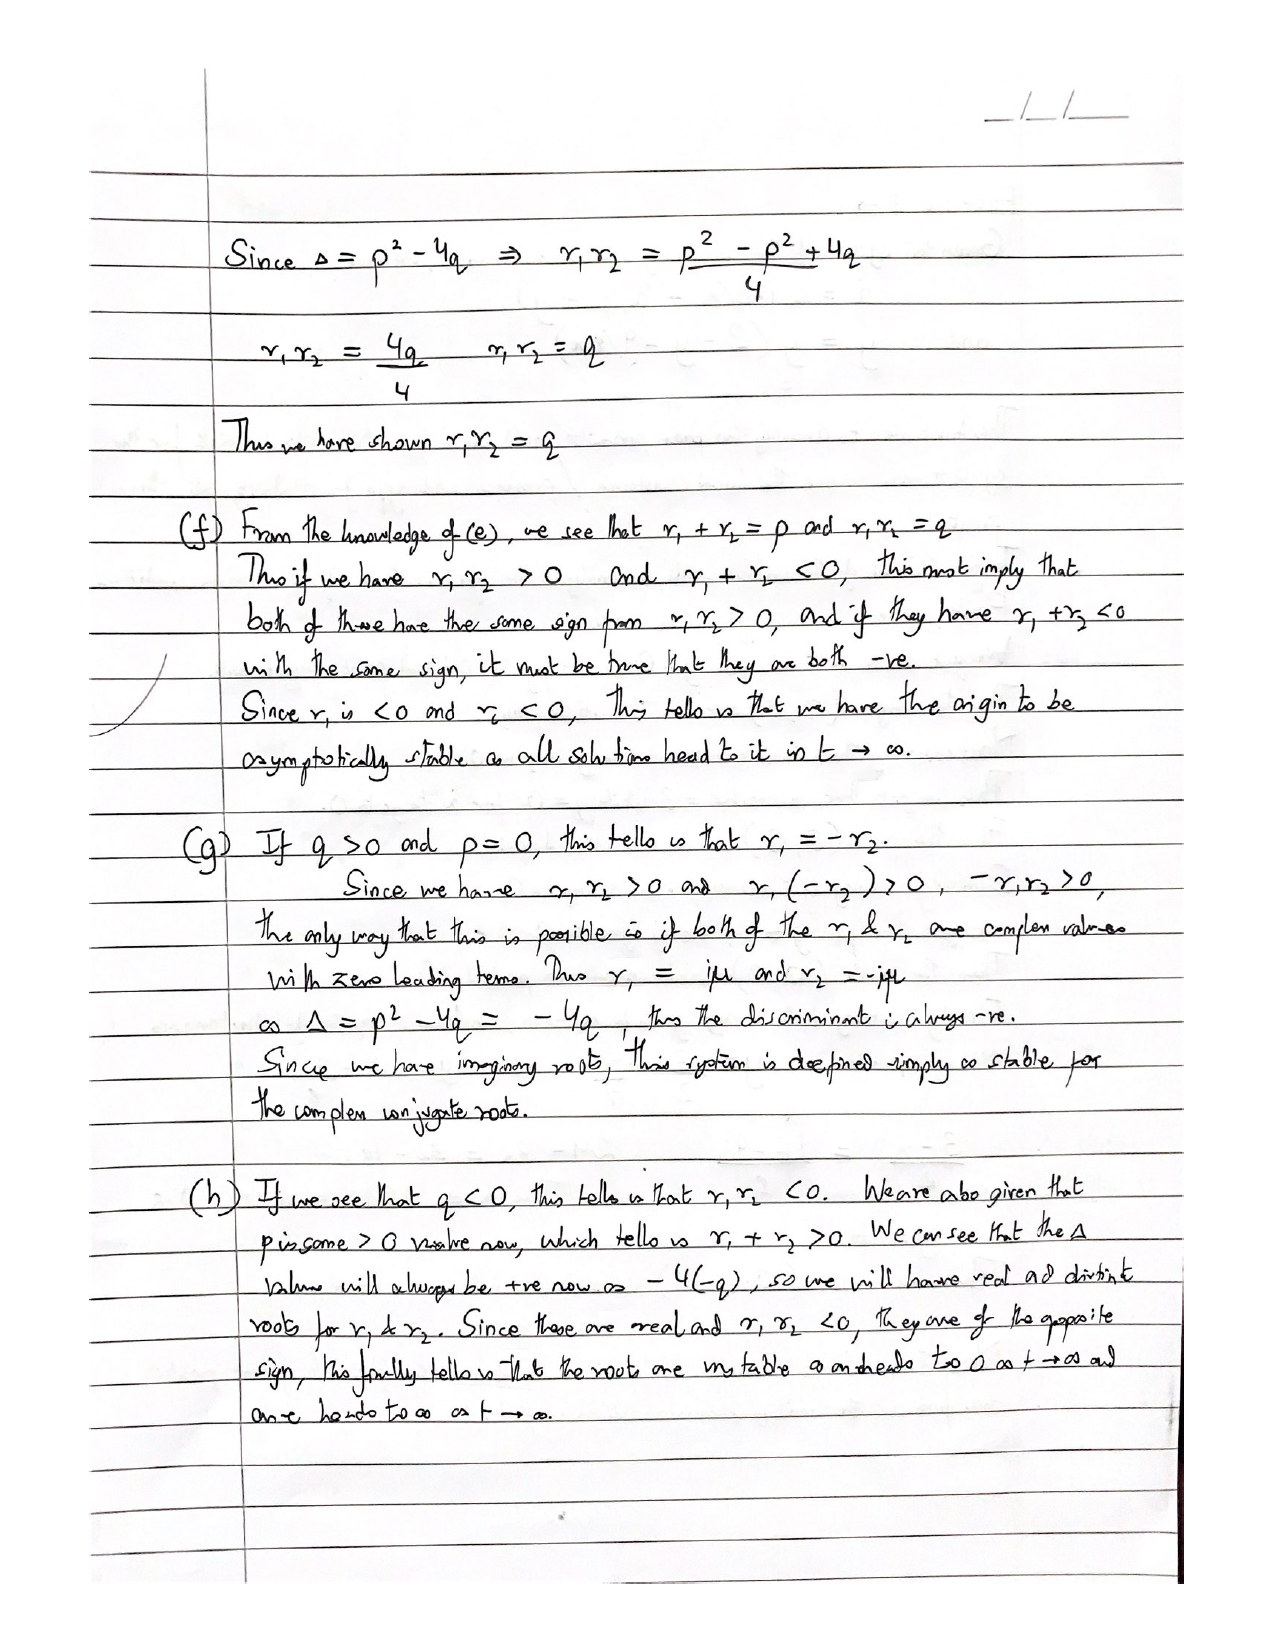 _/_/__
Since Δ = p² - 4q ⇒ r₁r₂ = (p² - p² + 4q)/4
r₁r₂ = 4q/4 r₁r₂ = q
Thus we have shown r₁r₂ = q
(f) From the knowledge of (e), we see that r₁ + r₂ = p and r₁r₂ = q
Thus if we have r₁r₂ > 0 and r₁ + r₂ < 0, this must imply that
both of these have the same sign from r₁r₂ > 0, and if they have r₁ + r₂ < 0
with the same sign, it must be true that they are both -ve.
Since r₁ is < 0 and r₂ < 0, this tells us that we have the origin to be
asymptotically stable as all solutions head to it in t → ∞.
(g) If q > 0 and p = 0, this tells us that r₁ = -r₂.
Since we have r₁r₂ > 0 and r₁(-r₂) > 0, -r₁r₂ > 0,
the only way that this is possible is if both of the r₁ & r₂ are complex values
with zero leading terms. Thus r₁ = iμ and r₂ = -iμ
as Δ = p² - 4q = -4q, thus the discriminant is always -ve.
Since we have imaginary roots, this system is deefined simply as stable for
the complex conjugate roots.
(h) If we see that q < 0, this tells us that r₁r₂ < 0. We are also given that
p is some > 0 value now, which tells us r₁ + r₂ > 0. We can see that the Δ
value will always be +ve now as -4(-q), so we will have real ad distinct
roots for r₁ & r₂. Since these are real and r₁r₂ < 0, they are of the opposite
sign, this finally tells us that the roots are unstable as on heads to 0 as t → ∞ and
one heads to ∞ as t → ∞.